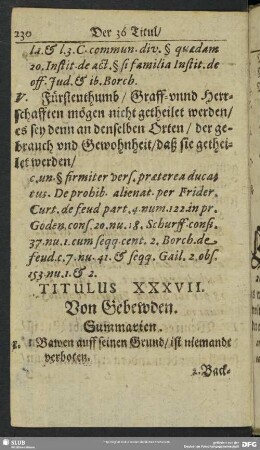 230 Der 36 Titul/
l.4. & l.3. C. commun. div. § quædam
20. Instit. de act. § si familia Instit. de
off. Jud. & ib. Borch.
V. Fürstenthumb / Graff- vnnd Herr-
schafften mögen nicht getheilet werden/
es sey denn an denselben Orten / der ge-
brauch vnd Gewohnheit / daß sie gethei-
let werden/
c. un. § firmiter vers. præterea duca-
tus. De prohib. alienat. per Frider.
Curt. de feud. part. 4. num. 122. in pr.
Goden. cons. 20. nu. 18. Schurff. consi.
37. nu. 1. cum seqq. cent. 2. Borch. de
feud. c. 7. nu. 41. & seqq. Gail. 2. obs.
153. nu. 1. & 2.
TITULUS XXXVII.
Von Gebewden.
Summarien.
1. Bawen auff seinen Grund / ist niemande
verboten.
2. Back-
SLUB
DFG